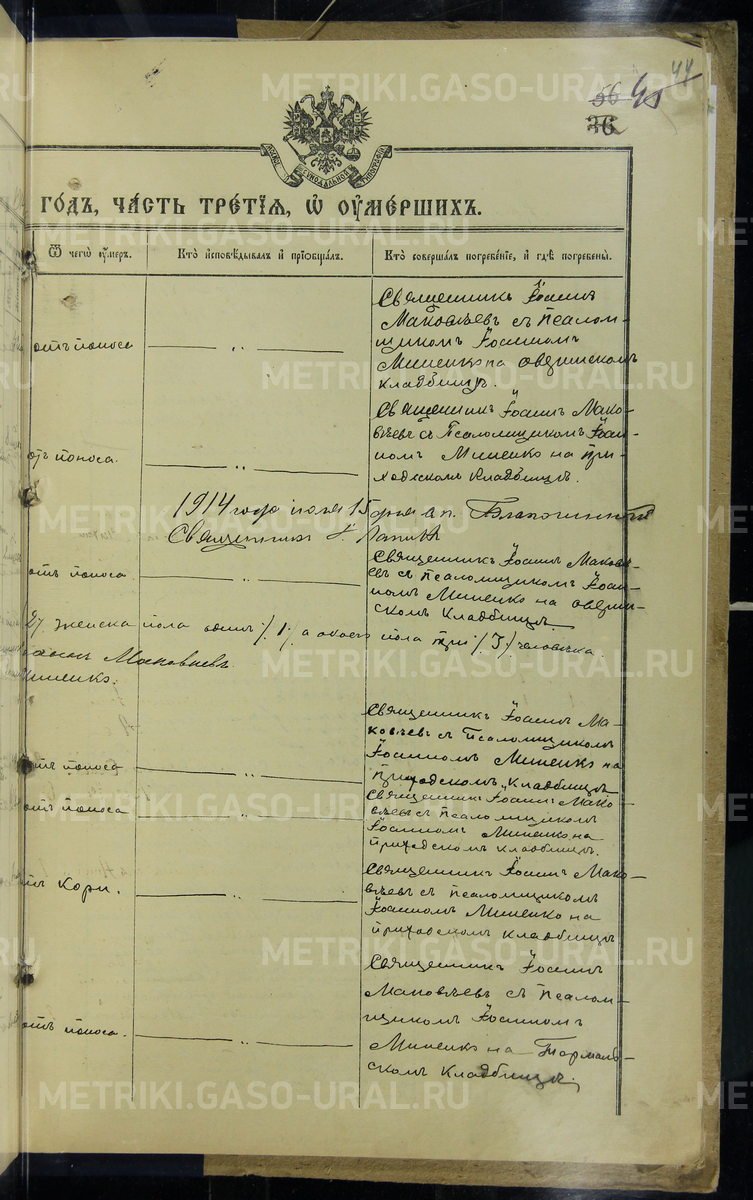 44
56
36
ГОДЪ, ЧАСТЬ ТРЕТІЯ, Ѡ ОУМЕРШИХЪ.
Ѿ чегѡ оумеръ.
Кто исповѣдывалъ и пріобщалъ.
Кто совершалъ погребеніе, и гдѣ погребены.
отъ поноса
Священникъ Іоаннъ
Маковѣевъ съ Псалом-
щикомъ Іоанномъ
Миненко на
кладбищѣ.
отъ поноса.
Священникъ Іоаннъ Мако-
вѣевъ съ Псаломщикомъ Іоан-
номъ Миненко на при-
ходскомъ кладбищѣ.
1914 года іюля 15 дня Благочинный
Священникъ
отъ поноса
Священникъ Іоаннъ Маковѣ-
евъ съ псаломщикомъ Іоан-
номъ Миненко на
скомъ кладбищѣ.
/2/. женска пола одинъ /1/ а обоего пола три /3/ человѣка.
Маковѣевъ
Миненко.
отъ поноса
Священникъ Іоаннъ Ма-
ковѣевъ съ Псаломщикомъ
Іоанномъ Миненко на
приходскомъ кладбищѣ
отъ поноса
Священникъ Іоаннъ Мако-
вѣевъ съ псаломщикомъ
Іоанномъ Миненко на
приходскомъ кладбищѣ.
отъ кори.
Священникъ Іоаннъ Мако-
вѣевъ съ псаломщикомъ
Іоанномъ Миненко на
приходскомъ кладбищѣ
отъ поноса.
Священникъ Іоаннъ
Маковѣевъ съ псалом-
щикомъ Іоанномъ
Миненко на
скомъ кладбищѣ.
METRIKI.GASO-URAL.RU